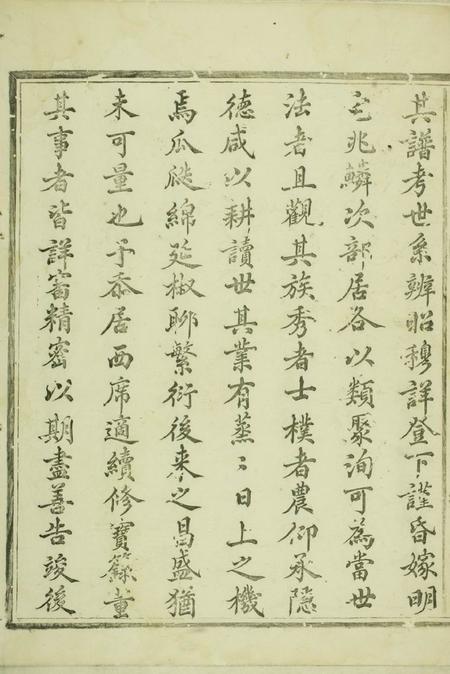 其譜考世系辨昭穆詳登下謹昏嫁明
宅兆鱗次部居各以類聚洵可為當世
法者且觀其族秀者士樸者農仰承隱
德咸以耕讀世其業有蒸〻日上之機
焉瓜瓞綿延椒聊繁衍後来之昌盛猶
未可量也予忝居西席適續修寶籙董
其事者皆詳審精密以期盡善告竣後